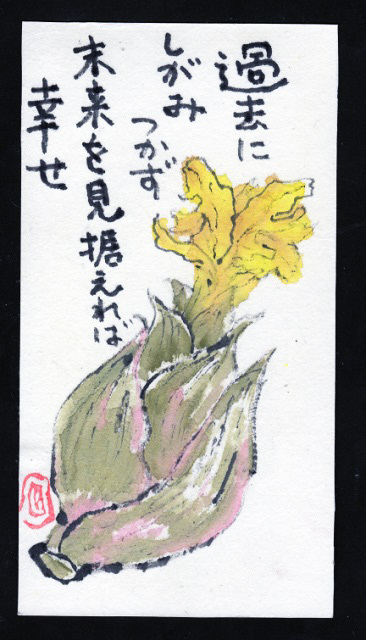 過去に
しがみ
つかず
未来を見据えれば
幸せ